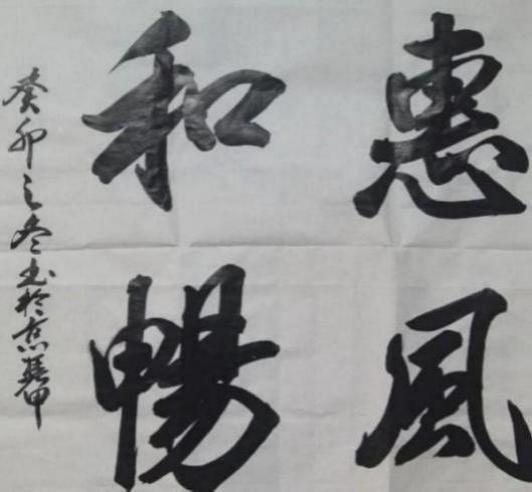 惠風
和暢
癸卯之冬書於京華